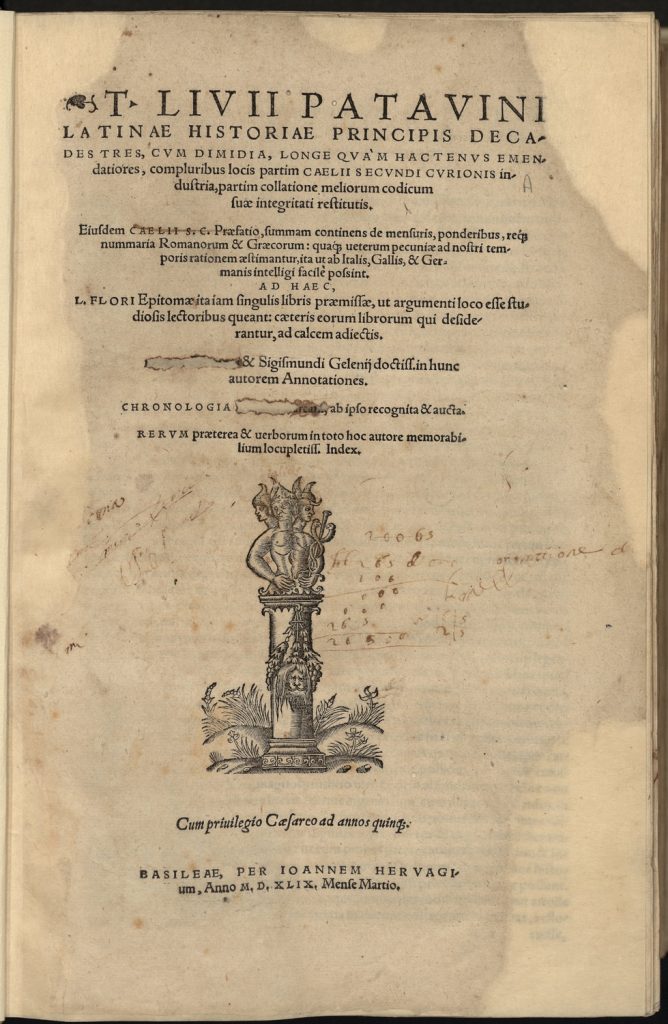 T. LIVII PATAVINI
LATINAE HISTORIAE PRINCIPIS DECA-
DES TRES, CVM DIMIDIA, LONGE QVA'M HACTENVS EMEN-
datiores, compluribus locis partim CAELII SECVNDI CVRIONIS in-
dustria, partim collatione meliorum codicum
A
suæ integritati restitutis.
Eiusdem CAELII S. C. Præfatio, summam continens de mensuris, ponderibus, reqȝ
nummaria Romanorum & Græcorum: quaqȝ ueterum pecuniæ ad nostri tem-
poris rationem æstimantur, ita ut ab Italis, Gallis, & Ger-
manis intelligi facile possint.
AD HAEC,
L. FLORI Epitomæ ita iam singulis libris præmissæ, ut argumenti loco esse stu-
diosis lectoribus queant: cæteris eorum librorum qui deside-
rantur, ad calcem adiectis.
& Sigismundi Gelenij doctiss. in hunc
autorem Annotationes.
CHRONOLOGIA , ab ipso recognita & aucta.
RERVM præterea & uerborum in toto hoc autore memorabi-
lium locupletiss. Index.
20065
265
100
000
000
265
26500
Cum priuilegio Cæsareo ad annos quinqȝ.
BASILEAE, PER IOANNEM HERVAGI-
um, Anno M. D. XLIX. Mense Martio.